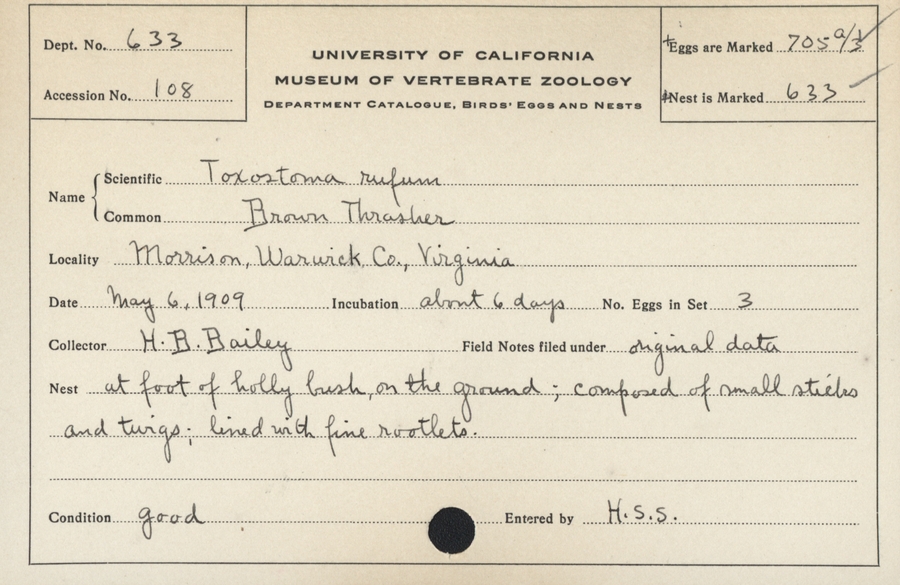 Dept. No. 633
Accession No. 108
UNIVERSITY OF CALIFORNIA
MUSEUM OF VERTEBRATE ZOOLOGY
DEPARTMENT CATALOGUE, BIRDS' EGGS AND NESTS
Eggs are Marked 705 a/3
Nest is Marked 633
Name { Scientific Toxostoma rufum
Common Brown Thrasher
Locality Morrison, Warwick Co., Virginia
Date May 6, 1909 Incubation about 6 days No. Eggs in Set 3
Collector H. B. Bailey Field Notes filed under original data
Nest at foot of holly bush, on the ground; composed of small sticks
and twigs; lined with fine rootlets.
Condition good Entered by H.S.S.